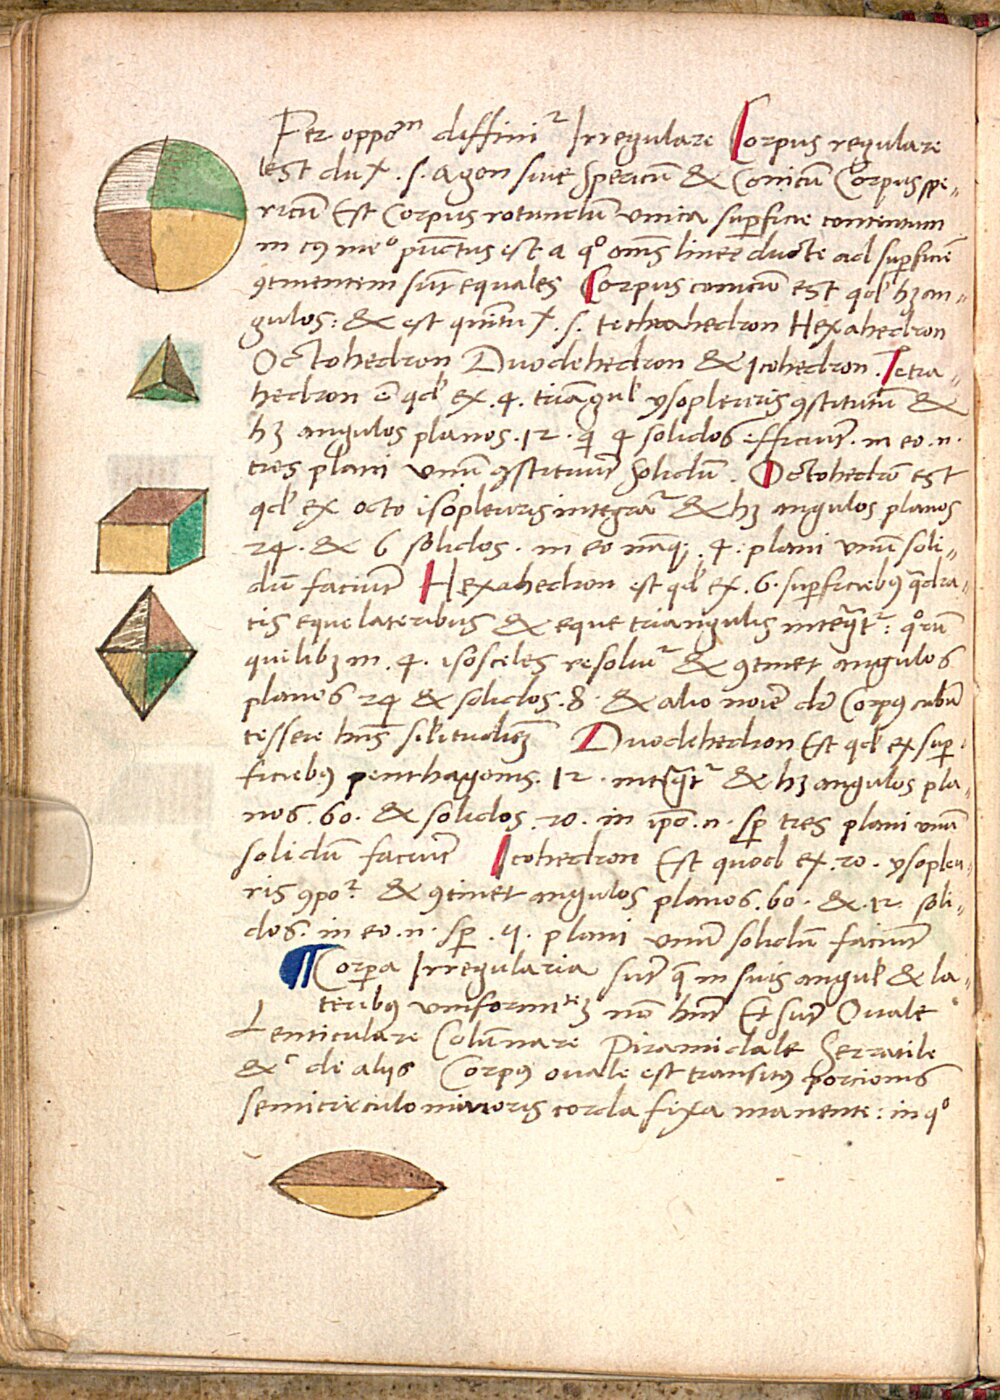 Per oppoᵐ diffiniᵗ Irregulare Corpus regulare
est dux . s. agon siue spericū & Conicū Corpus spe„
ricū Est Corpus rotundū vnica supficie contentum
in cꝰ meᵒ pūctus est a qᵒ oms linee ducte ad supficiē
ꝯtinentem sūt equales Corpus conicū est qđ hꝫ an„
gulos: & est quintux . s. tethrahedron Hexahedron
Octohedron Duodehedron & Icohedron . Tetra„
hedron ē qđ ex .4. triāgul ysopleuris ꝯstitutū &
hꝫ angulos planos .12. q 4 solidos efficiūt. in eo .n.
tres plani vnū ꝯstituūt solidū . Octohedrō est
qđ ex octo isopleuris integraᵗ & hꝫ angulos planos
24. & 6 solidos . in eo nāqꝫ .4. plani vnū soli„
dū faciūt Hexahedron est qđ ex .6. supficiebꝰ qdra„
tis eque lateribus & eque triangulis integᵗ : qᵒrū
quilibꝫ in .4. isosceles resoluiᵗ & ꝯtinet angulos
planos 24 & solidos .8. & alio noīe dr Corpꝰ cubū
tessere hns silitudiēꝫ Duodehedron Est qđ ex sup„
ficiebꝰ penthagonis .12. integᵗ & hꝫ angulos pla„
nos .60. & solidos .20. in ipō .n. sp tres plani vnū
solidū faciūt Icohedron Est quod ex .20. ysopleu„
ris ꝯpoᵗ & ꝯtinet angulos planos .60. & .12. soli„
dos. in eo .n. sp .4. plani vnū solidū faciūt
¶ Corpa Irregularia sūt q in suis angul & la„
teribꝰ vniformitᵉꝫ nō hnt Et sūt Ouale
Lenticulare Colūnare Piramidale Serratile
&ᶜ de alijs Corpꝰ ouale est transitꝰ porcionis
semicirculo minoris corda fixa manente : in qᵒ